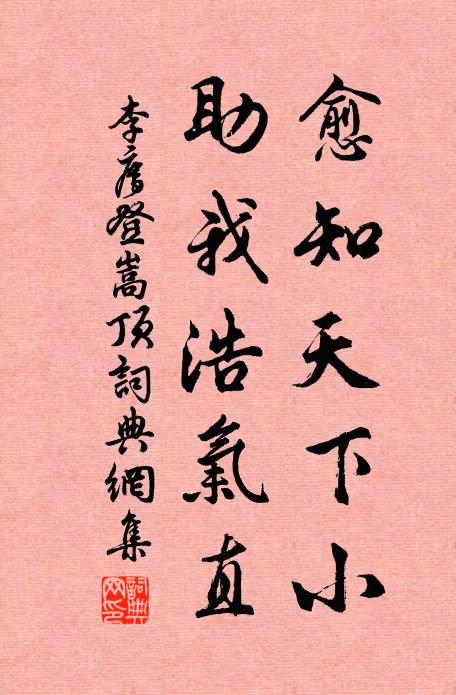 愈知天下小
助我浩氣直
李廌登嵩頂詞典網集
詞典網印